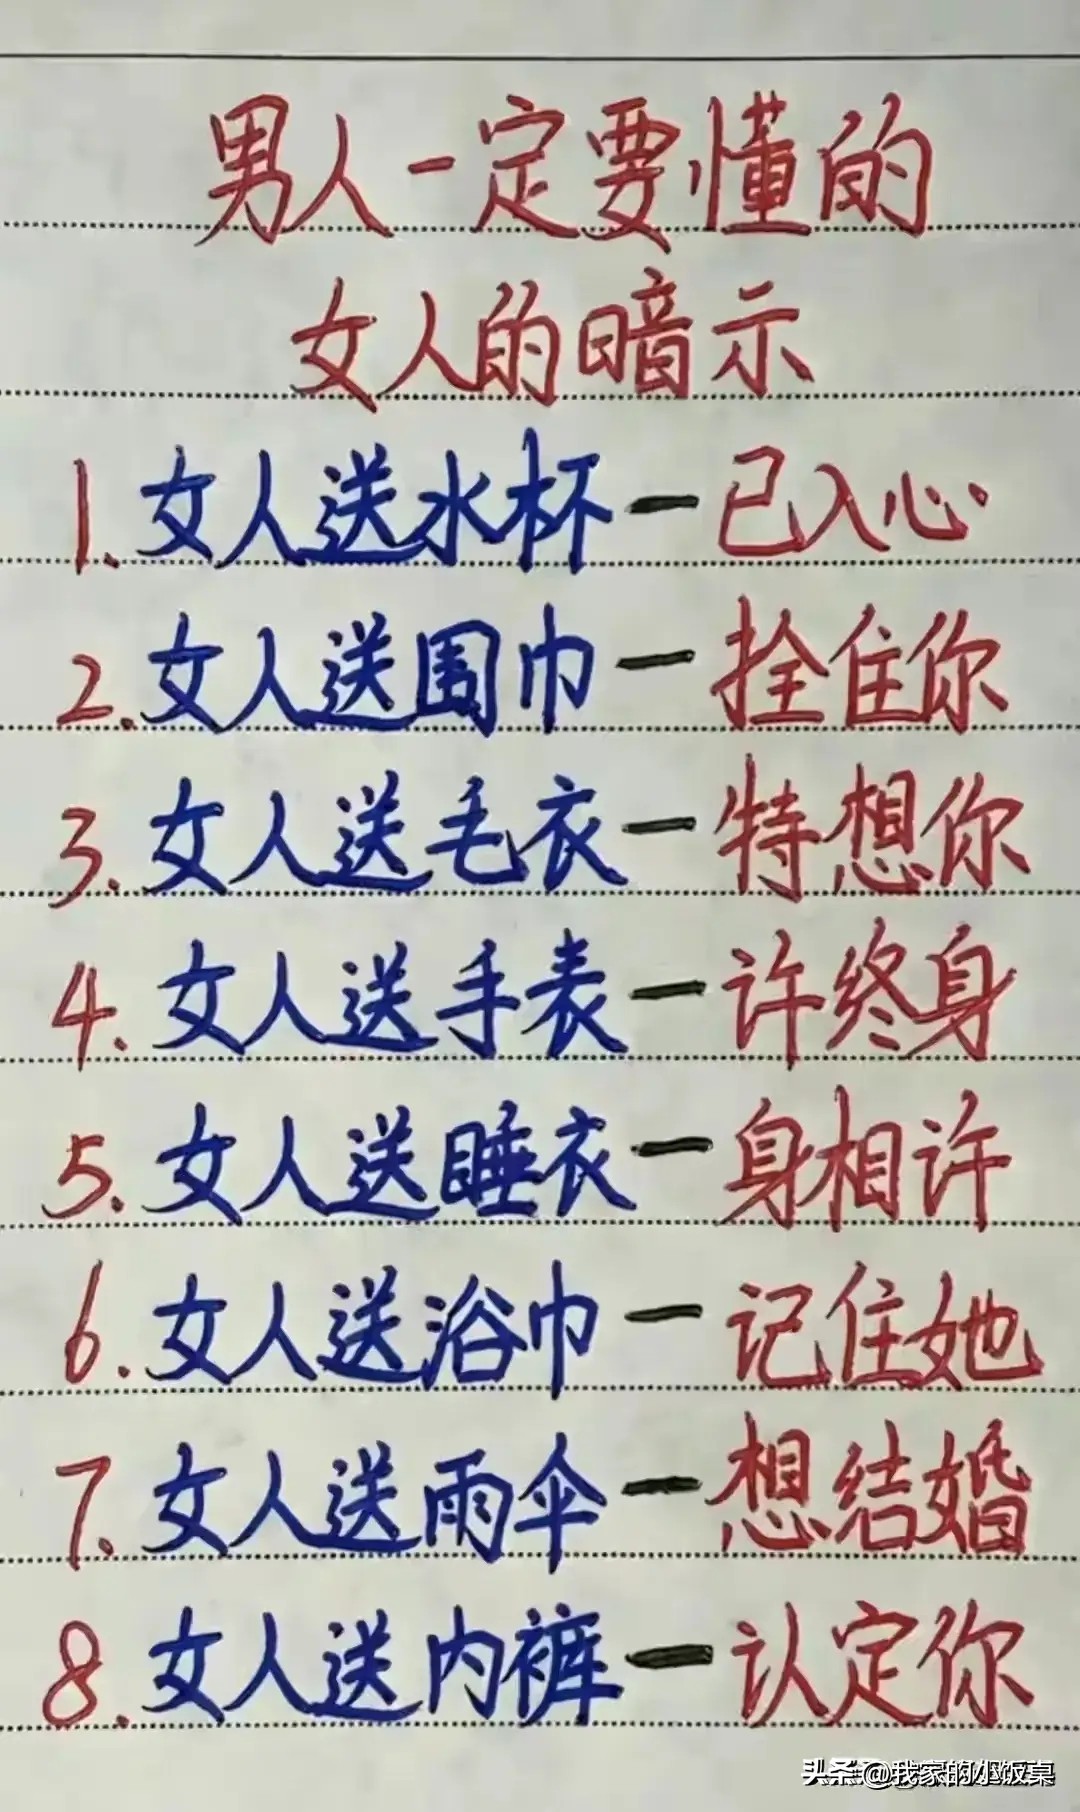 男人一定要懂的
女人的暗示
1.女人送水杯一已入心
2.女人送围巾一拴住你
3.女人送毛衣一特想你
4.女人送手表一许终身
5.女人送睡衣一身相许
6.女人送浴巾一记住她
7.女人送雨伞一想结婚
8.女人送内裤一认定你
头条@我家的小饭桌